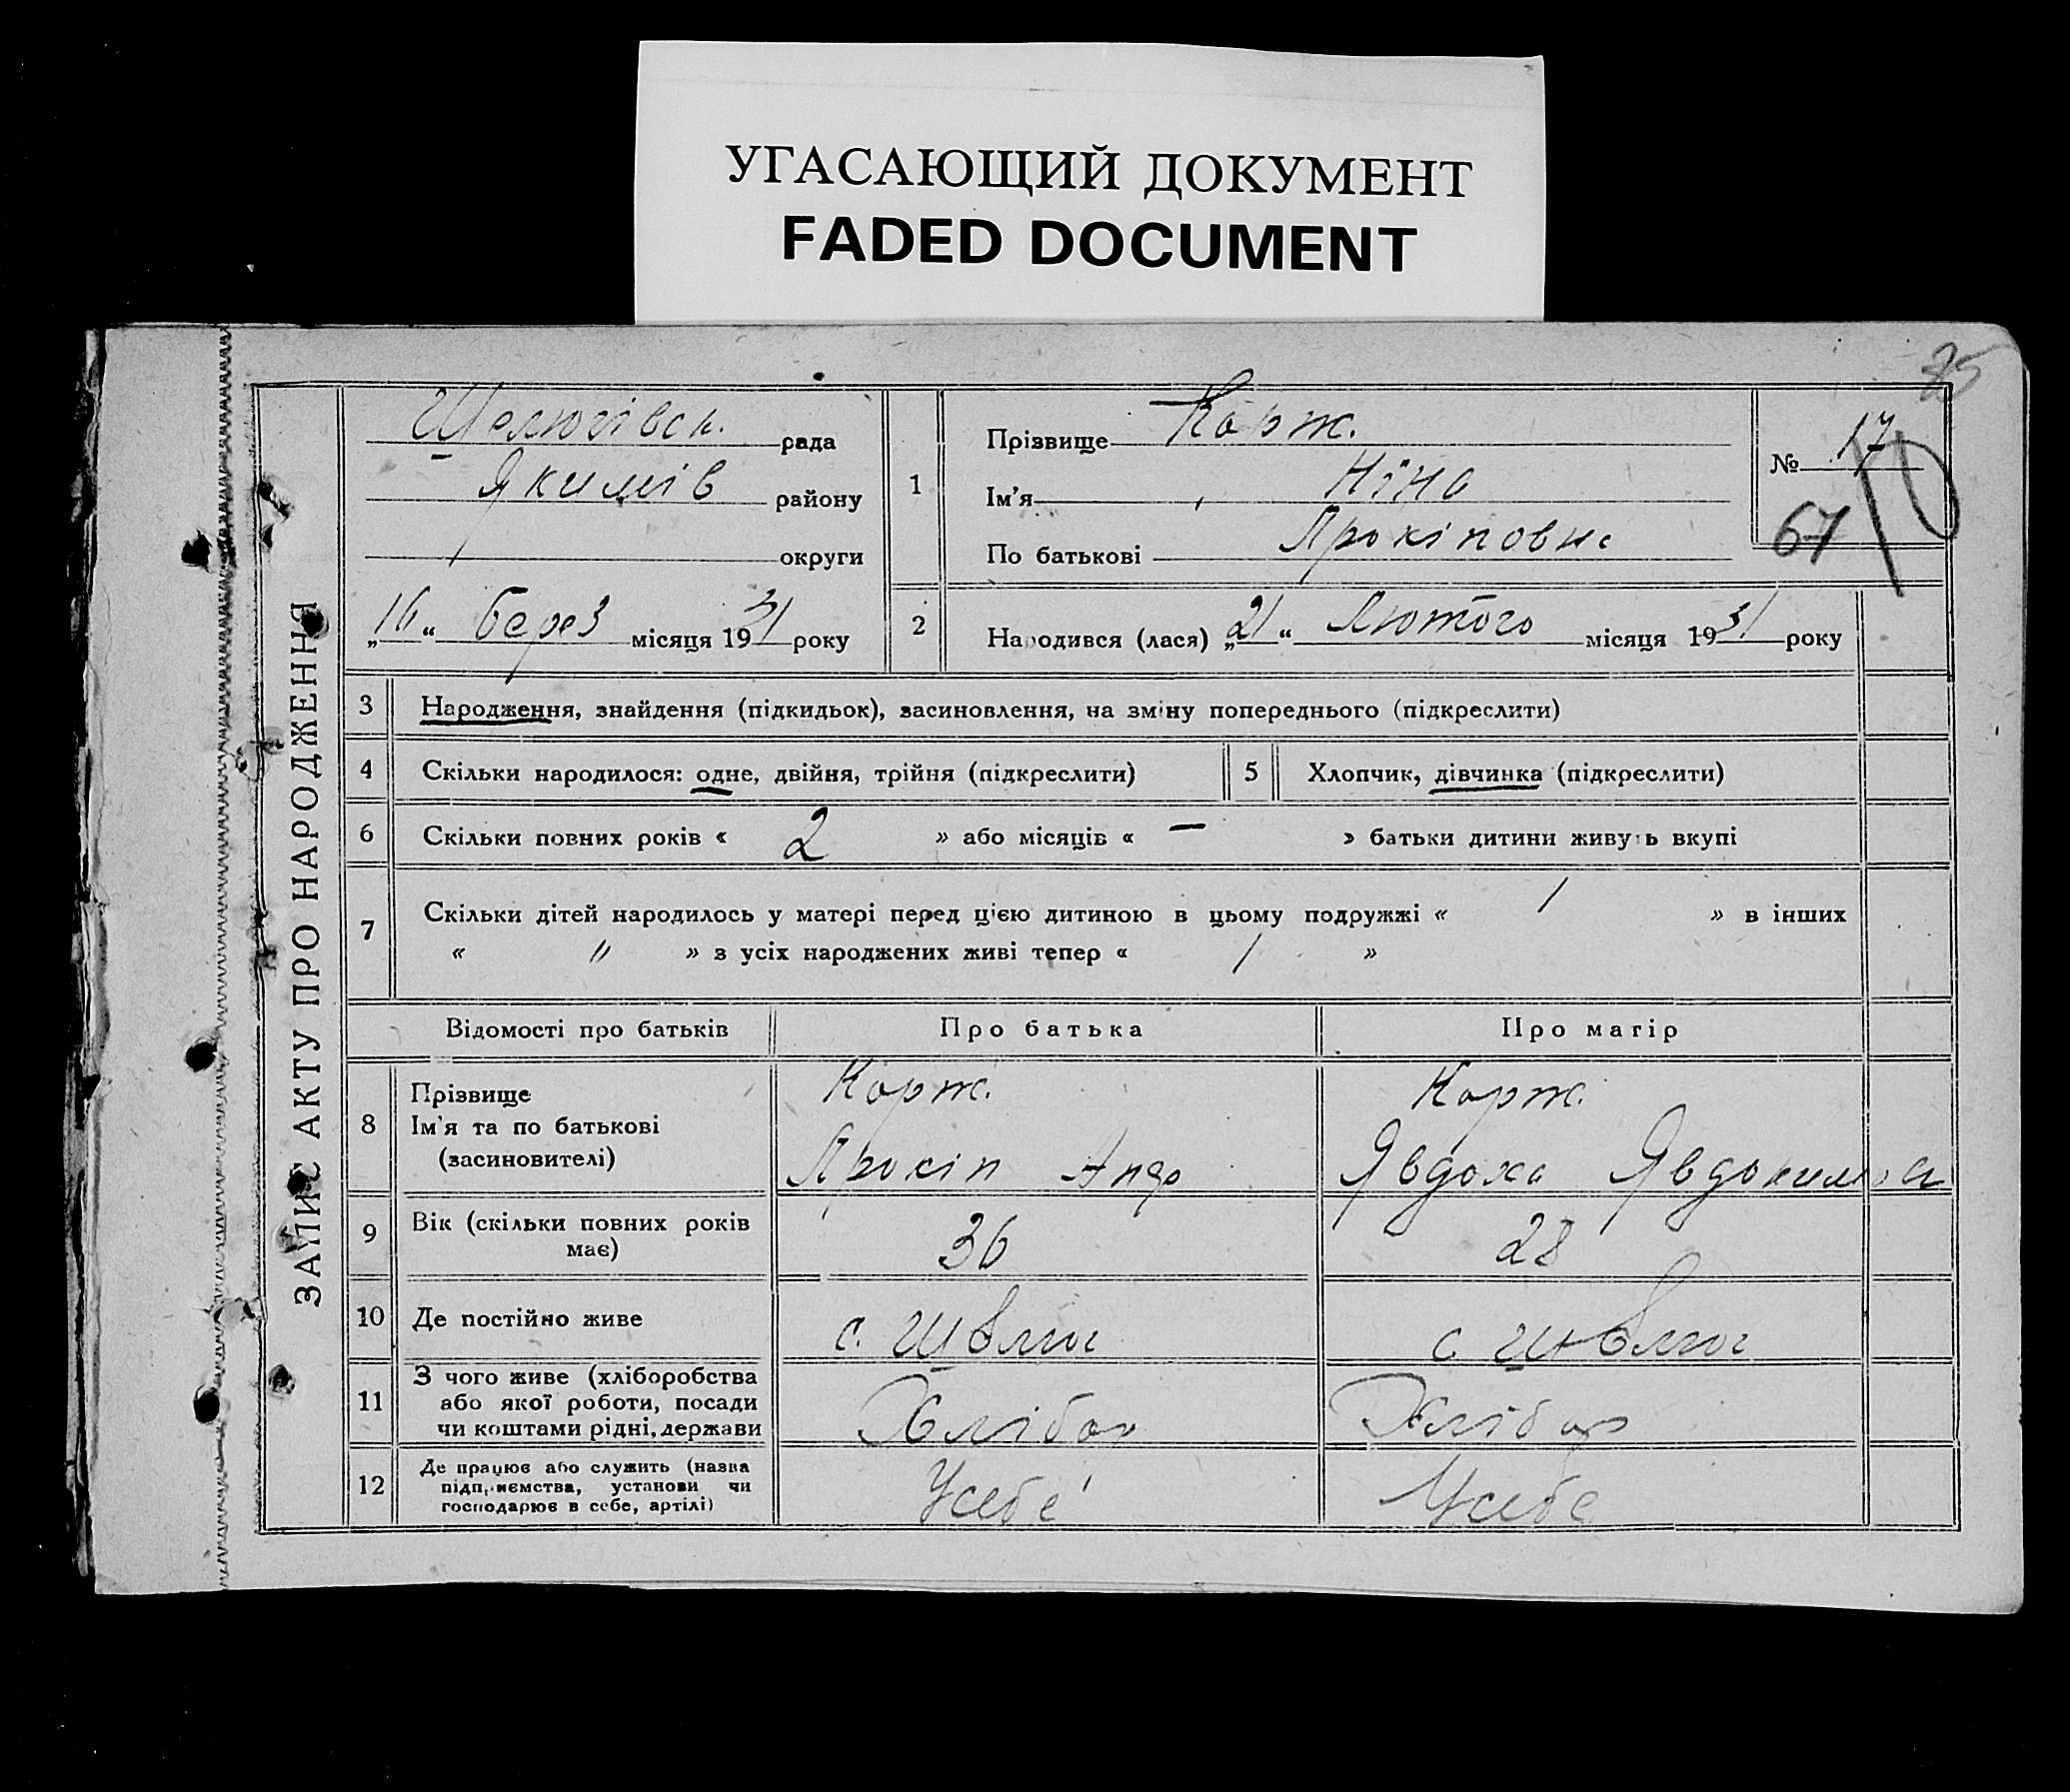 УГАСАЮЩИЙ ДОКУМЕНТ
FADED DOCUMENT
85
ЗАПИС АКТУ ПРО НАРОДЖЕННЯ
Шелюгівськ. рада
Якимів району
округи
„16“ берез місяця 1931 року
1
Прізвище Корж.
Ім'я Ніна
По батькові Прокіповна
№ 17
67
2 Народився (лася) „21“ Лютого місяця 1931 року
3 Народження, знайдення (підкидьок), засиновлення, на зміну попереднього (підкреслити)
4 Скільки народилося: одне, двійня, трійня (підкреслити) 5 Хлопчик, дівчинка (підкреслити)
6 Скільки повних років « 2 » або місяців « — » батьки дитини живуть вкупі
7 Скільки дітей народилось у матері перед цією дитиною в цьому подружжі « 1 » в інших
« " » з усіх народжених живі тепер « 1 »
Відомості про батьків Про батька Про матір
8 Прізвище Корж. Корж.
Ім'я та по батькові
(засиновителі) Прокіп Андр Явдоха Явдоким
9 Вік (скільки повних років
має) 36 28
10 Де постійно живе с. с.
11 З чого живе (хліборобства
або якої роботи, посади
чи коштами рідні, держави Хлібор Хлібор
12 Де працює або служить (назва
підприємства, установи чи
господарює в себе, артілі) Усебе Усебе